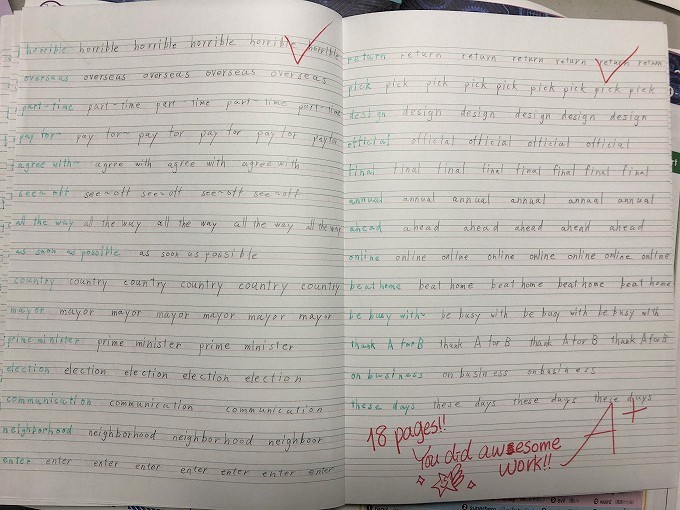 horrible horrible horrible horrible horrible horrible
overseas overseas overseas overseas overseas
part-time part-time part-time part-time part-time
pay for~ pay for~ pay for pay for pay for pay for
agree with~ agree with agree with agree with
see~off see~off see~off see~off see~off
all the way all the way all the way all the way all the way
as soon as possible as soon as possible
country country country country country country
mayor mayor mayor mayor mayor mayor mayor
prime minister prime minister prime minister
election election election election election
communication communication communication
neighborhood neighborhood neighborhood neighboor
enter enter enter enter enter enter enter enter
return return return return return return return
pick pick pick pick pick pick pick pick pick
design design design design design design
official official official official official
final final final final final final final
annual annual annual annual annual annual
ahead ahead ahead ahead ahead ahead
online online online online online online online
beat home beat home beat home beat home beat home
be busy with~ be busy with be busy with be busy with
thank A for B thank A for B thank A for B thank A for B
on business on business on business
these days these days these days these days
18 pages!!
You did awesome
work!!
A+